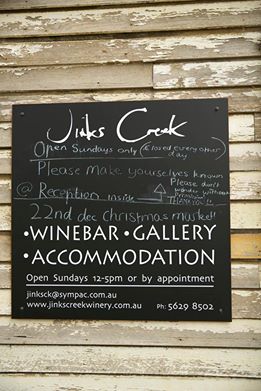 Jinks Creek
Open Sundays only (closed every other day)
Please make yourselves known
@ Reception inside
Please don't wander without
THANKYOU!!
22nd dec christmas market!
•WINEBAR•GALLERY
•ACCOMMODATION
Open Sundays 12-5pm or by appointment
jinksck@sympac.com.au
www.jinkscreekwinery.com.au Ph: 5629 8502